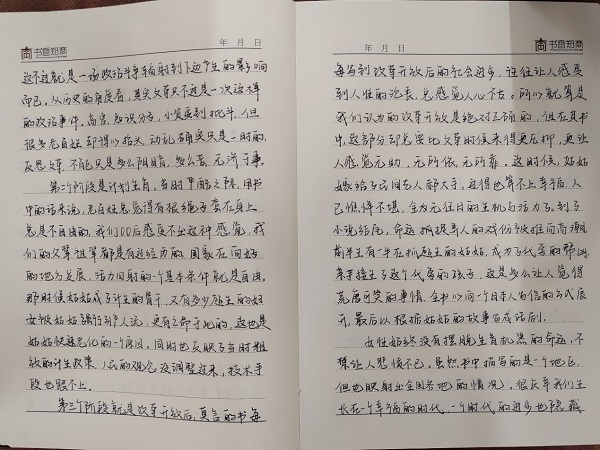 书香知商
年 月 日
这不过就是一场政治斗争辐射到下边产生的影响
而已,从历史的角度看,其实文革只不过是一次波
的政治事件。高官、知识分子,小贫受到批斗。但
很多老百姓却得以抬头,动乱确实只是一时的,
反思文革,不能只是多么阴暗,多么苦,无济于事。
第二个阶段是计划生育,当时严酷之际,用书
中的话来说,老百姓总觉得有根绳子套在身上
总是不自由的,我们00后感受不出这种感觉,我
们的父辈祖辈都是有这经历的,国家在向好
的地方发展,活力四射的一个基本条件就是自由。
那时候姑姑成了计生的骨干,又有多少超生的妇
女被姑姑强行引产人说,更有之命于此的,这也是
姑姑快速老化的一个原因,同时也反映了当时粗
放的计生政策。人民的观念没调整过来,技术手
段也跟不上。
第三个阶段就是改革开放后,莫言的书每
书香知商
年 月 日
每写到改革开放后的社会进步,往往让人感受
到人性的沧丧,总感觉人心不古。所以就算是
我们认为的改革开放是绝对正确的,但在其书
中,这部分却总要比文革时候来得更压抑,更让
人感觉无助,无所依,无所靠。这时候,姑姑
嫁给了民间艺人郝大手,过得也算不上幸福,人
已憔悴不堪,全无往日的生机与活力了。到了
小说结尾,命运捉弄人的戏份被推向高潮,
前半生有一半在抓超生的姑姑,成为了代孕的帮凶,
亲手接生了这个代孕的孩子,这是多么让人觉得
荒唐可笑的事情。全书以向一个日本人写信的方式展
开,最后以根据姑姑的故事写成话剧。
女性始终没有摆脱生育机器的命运,不
禁让人悲愤不已。虽然书中描写的是一个地区,
但也映射出全国各地的情况。很庆幸我们生
长在一个幸福的时代,一个时代的进步也隐藏